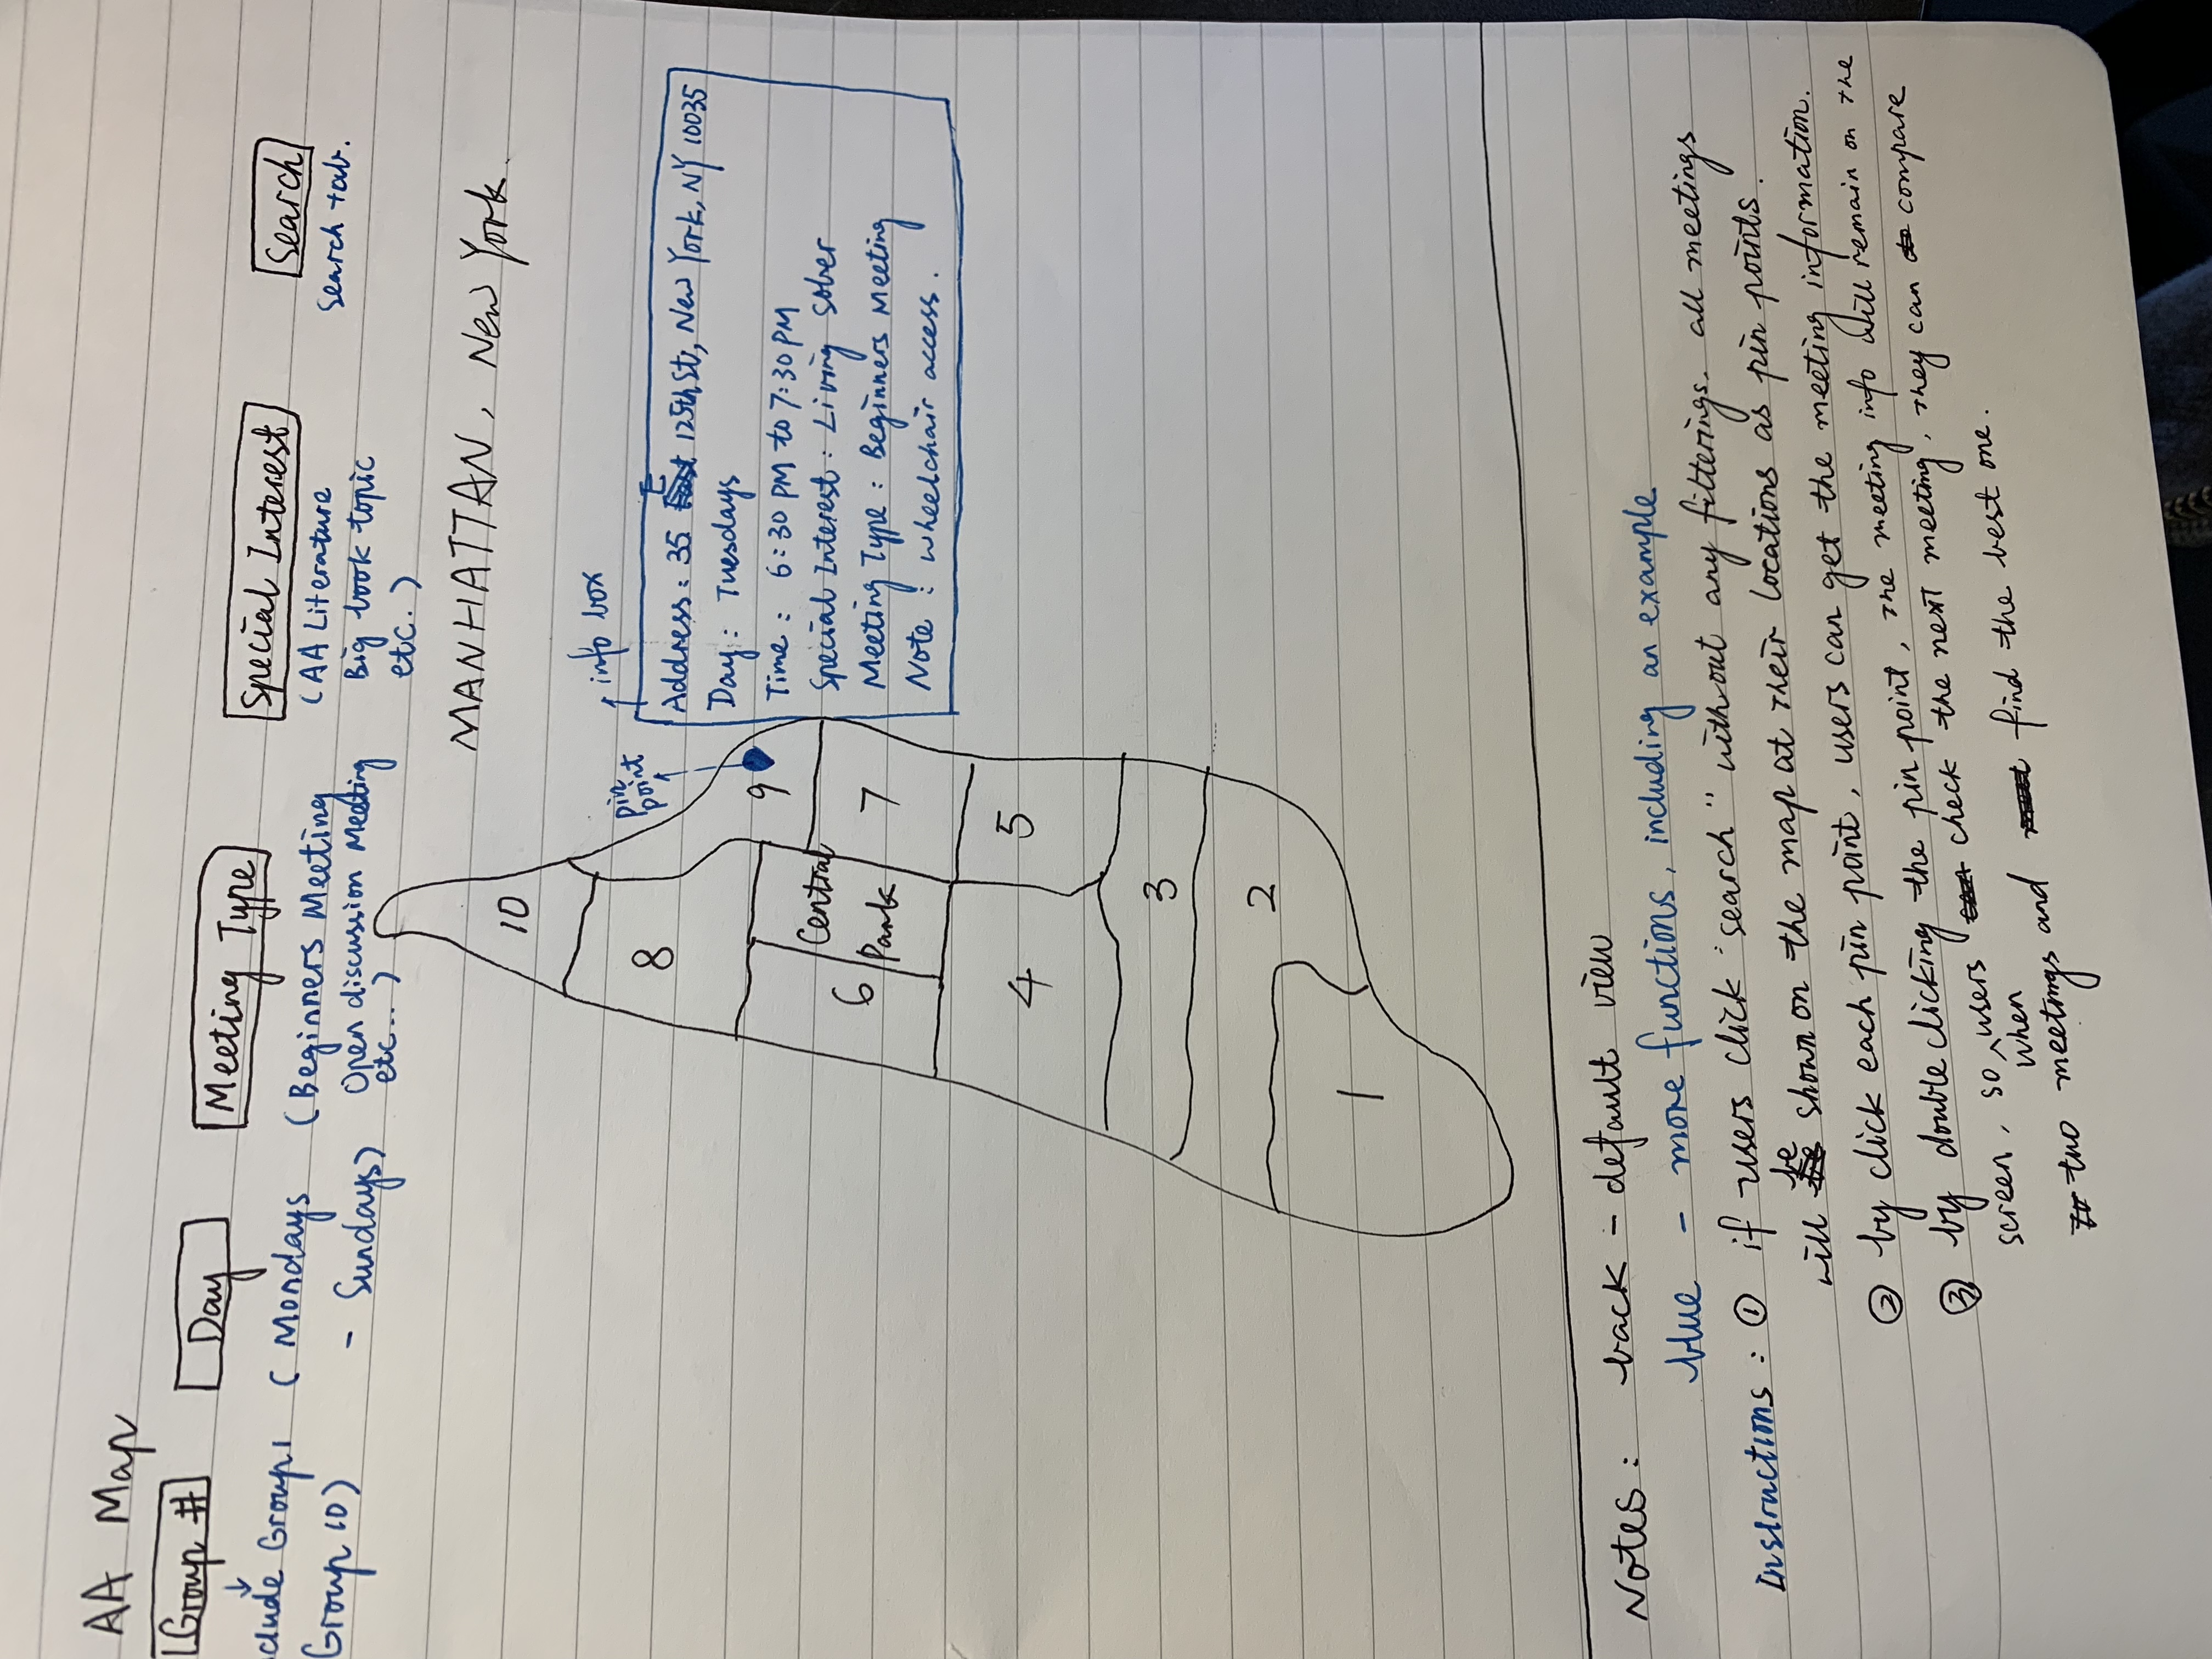 AA Map
Group #
Day
Meeting Type
Special Interest
Search
clude Group 1
Group 10)
( Mondays
- Sundays)
( Beginners Meeting
Open discussion Meeting
etc... )
( AA Literature
Big book topic
etc. )
Search tab.
MANHATTAN, New York.
10
8
9
6
Central
Park
7
4
5
3
2
1
pin
point
info box
Address: 35 E 125th St, New York, NY 10035
Day: Tuesdays
Time: 6:30 PM to 7:30 PM
Special Interest: Living Sober
Meeting Type: Beginners Meeting
Note: wheelchair access.
Notes: back - default view
blue - more functions, including an example
Instructions: ① if users click "search" without any filterings. all meetings
will be shown on the map at their locations as pin points.
② by click each pin point, users can get the meeting information.
③ by double clicking the pin point, the meeting info will remain on the
screen, so when users check the next meeting, they can compare
two meetings and find the best one.